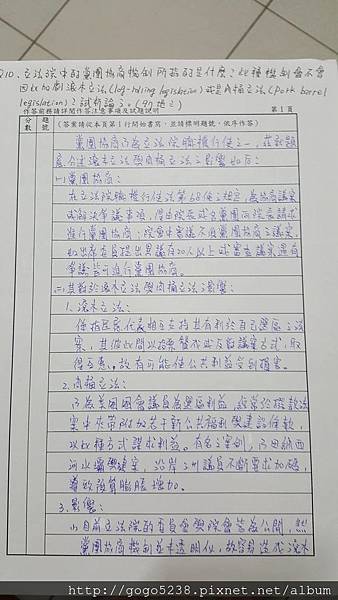 Q10、立法院中的黨團協商機制所指的是什麼？此種機制會不會
因此加劇滾木立法(log-rolling legislation)或是肉桶立法(pork barrel
legislation)？試析論之。(97
作答前務請詳閱作答注意事項及試題說明
第1頁
分數
題號
(答案請從本頁第1行開始書寫，並請標明題號，依序作答)
黨團協商乃為立法院職權行使之一，茲就題
意分述滾木立法與肉桶立法之影響如后：
(一)黨團協商：
在立法院職權行使法第68條之規定，為協商議案
或解決爭議事項，得由院長或各黨團向院長請求
進行黨團協商；院會中
如出席委員提出異議有20人以上或審查議案遇有
爭議皆可進行黨團協商。
(二)其對於滾木立法與肉桶立法之影響：
1.滾木立法：
係指民意代表相互支持具有利於自己選區之法
案，其彼此間以投票贊成或反對議案方式，取
得互惠，故有可能使公共利益受到損害。
2.肉桶立法：
乃為美國國會議員為選區利益，經常於撥款法
案中夾帶附加若干新公共福利與建設條款，
以此種方式謀求利益。有名之案例，乃田納西
河水壩興建案，沿岸之州議員不斷要求加碼，
導致預算膨脹增加。
3.影響：
(1)目前立法院的委員會與院會皆為公開，然
黨團協商機制並未透明化，故容易造成滾木
http://gogo5238.pixnet.net/album